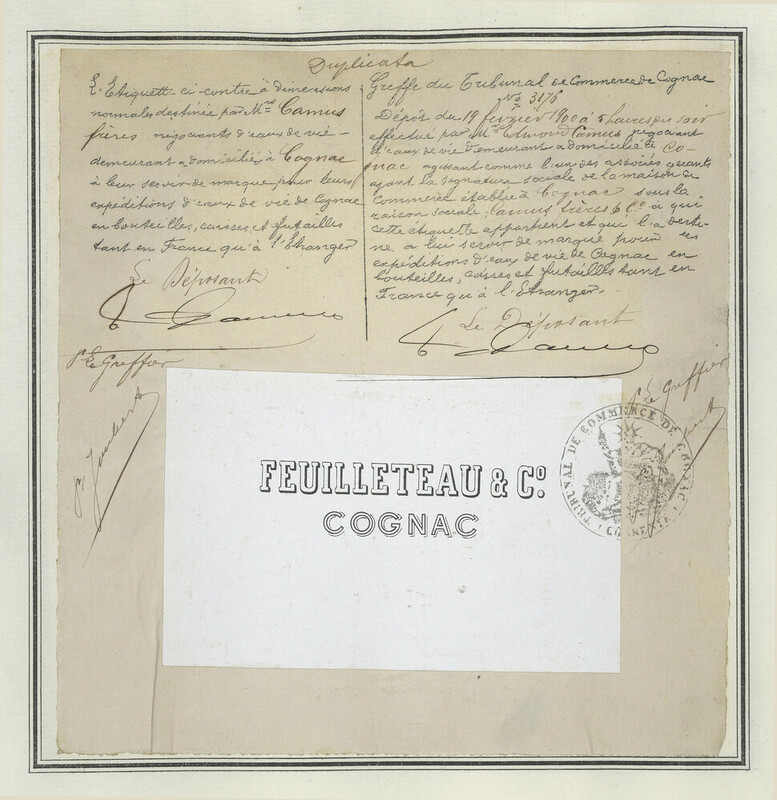 Duplicata
L'Etiquette ci-contre à dimensions
normales destinée par Mrs Camus
frères négociants d'eaux de vie
demeurant & domiciliés à Cognac
à leur servir de marque pour leurs
expéditions d'eaux de vie de Cognac
en bouteilles, caisses, et futailles
tant en France qu'à l'Etranger
Le Déposant
Camus
Pr Le Greffier
Greffe du Tribunal de Commerce de Cognac
No 3176
Dépôt du 19 février 1900 à 5 heures du soir
effectué par Mr Edmond Camus négociant
d'eaux de vie demeurant & domicilié à Co-
gnac agissant comme l'un des associés gérants
ayant la signature sociale de la maison de
Commerce établie à Cognac sous la
raison sociale: Camus frères & Co à qui
cette étiquette appartient et qui l'a desti-
né à lui servir de marque pour ses
expéditions d'eaux de vie de Cognac en
bouteilles, caisses et futailles tant en
France qu'à l'Etranger.
Le Déposant
Camus
Pr Le Greffier
Joubert
FEUILLETEAU & Co.
COGNAC
TRIBUNAL DE COMMERCE DE COGNAC
CHARENTE